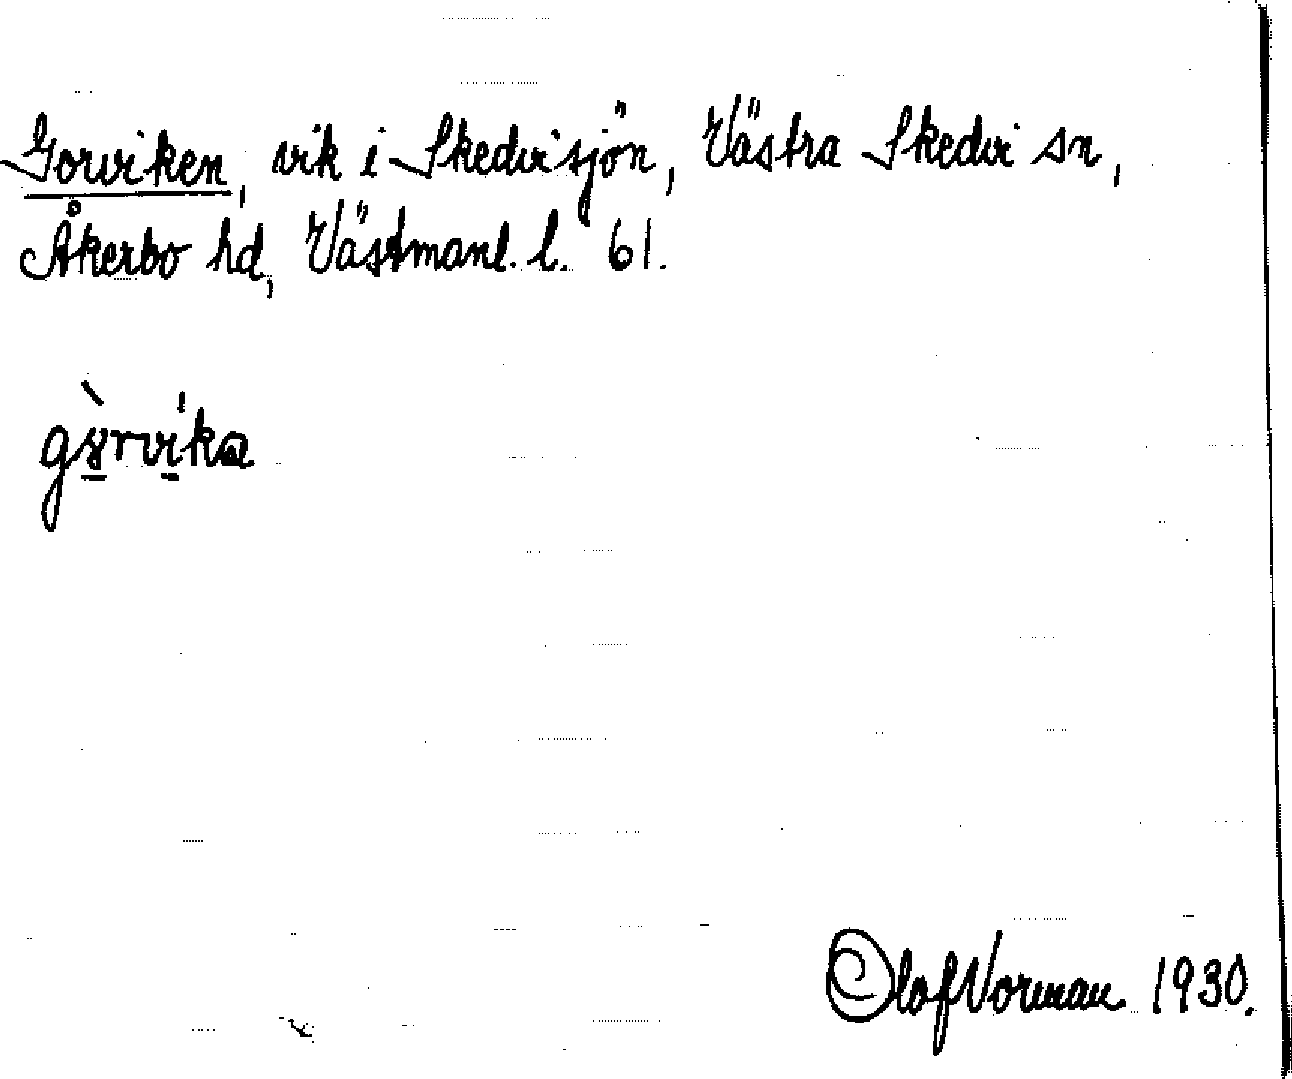 Gorviken, vik i Skedvisjön, Västra Skedvi sn,
Åkerbo hd, Västmanl. l. 61.
Olof Norman 1930.